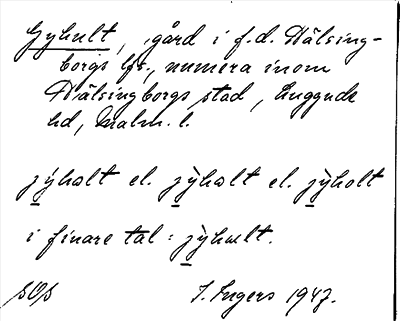 Gyhult, gård i f.d. Hälsing-
borgs lfs., numera inom
Hälsingborgs stad, Luggude
hd, Malm. l.
jýhalt el. jỳhalt el. jỳholt
i finare tal: jỳhult.
SOS I. Ingers 1947.